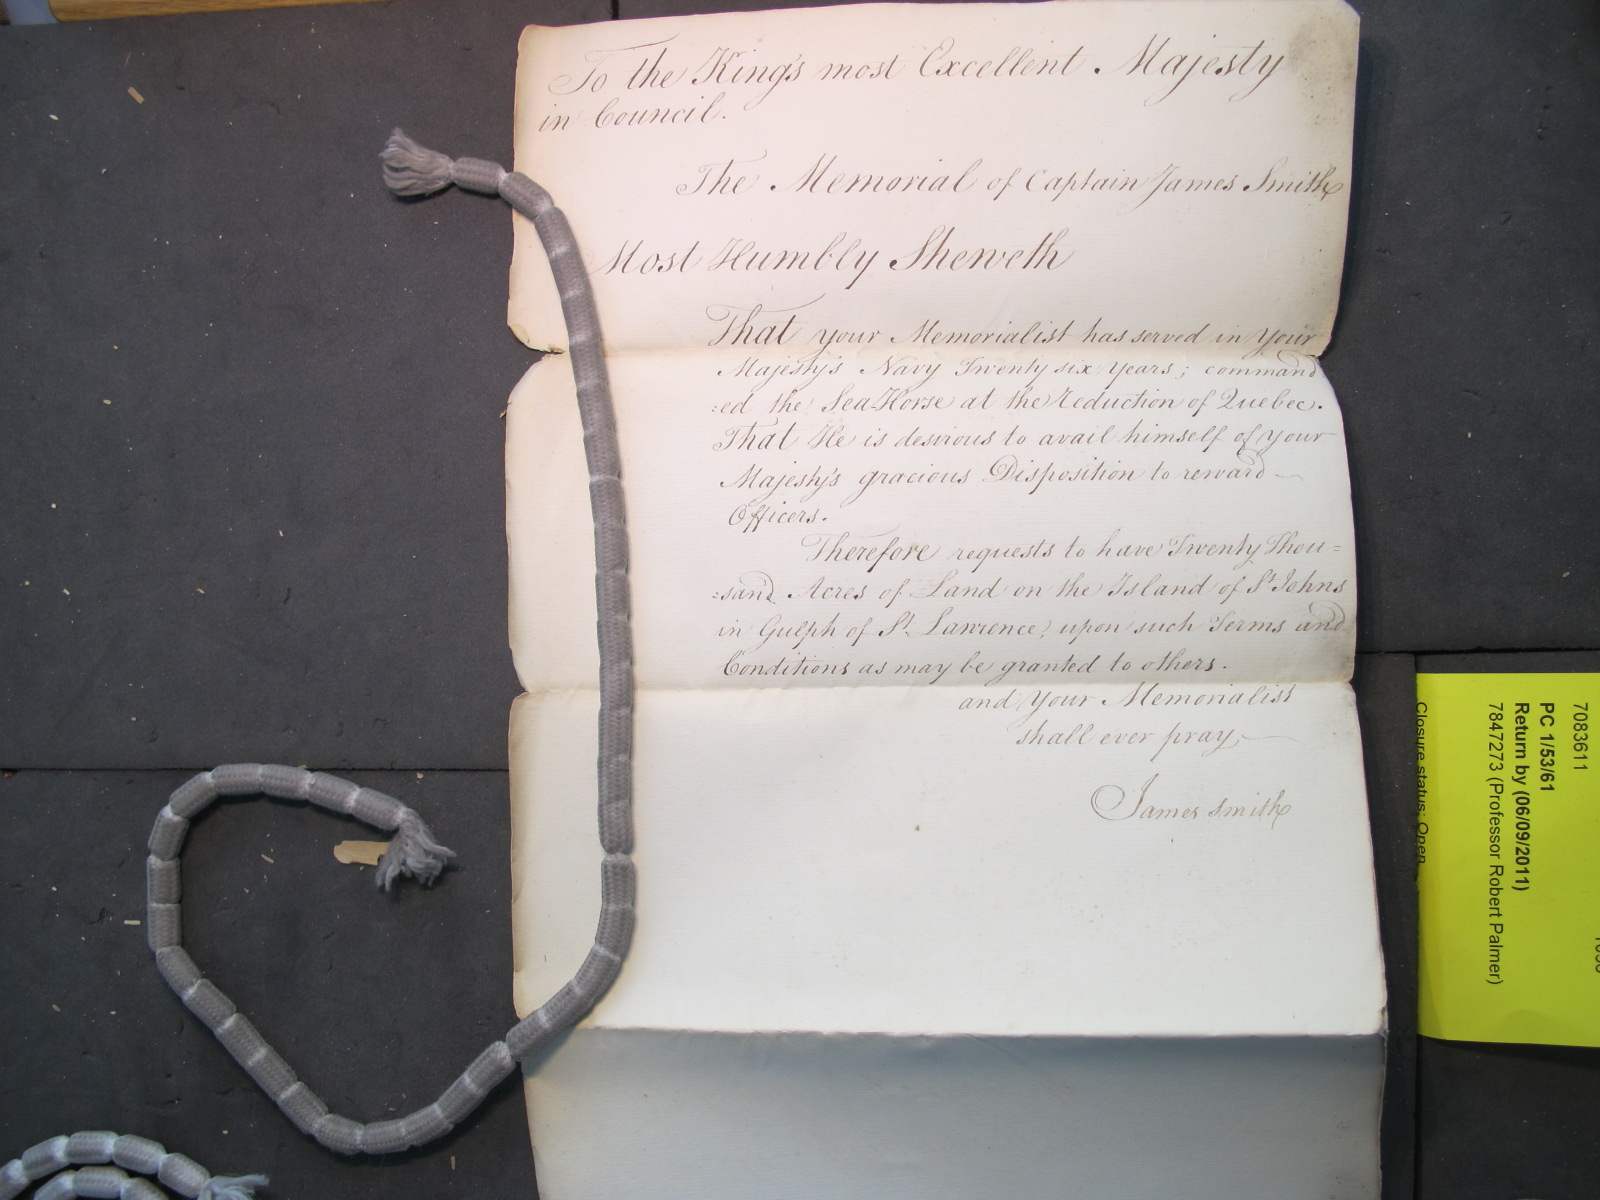 To the King's most Excellent Majesty
in Council.
The Memorial of Captain James Smith
Most Humbly Sheweth
That your Memorialist has served in Your
Majesty's Navy Twenty six Years; command
:ed the SeaHorse at the Reduction of Quebec.
That He is desirous to avail himself of your
Majesty's gracious Disposition to reward
Officers.
Therefore requests to have Twenty Thou=
=sand Acres of Land on the Island of St. Johns
in Gulph of St. Lawrence, upon such Terms and
Conditions as may be granted to others.
and Your Memorialist
shall ever pray,
James Smith
7083611
PC 1/53/61
Return by (06/09/2011)
7847273 (Professor Robert Palmer)
Closure status: Open